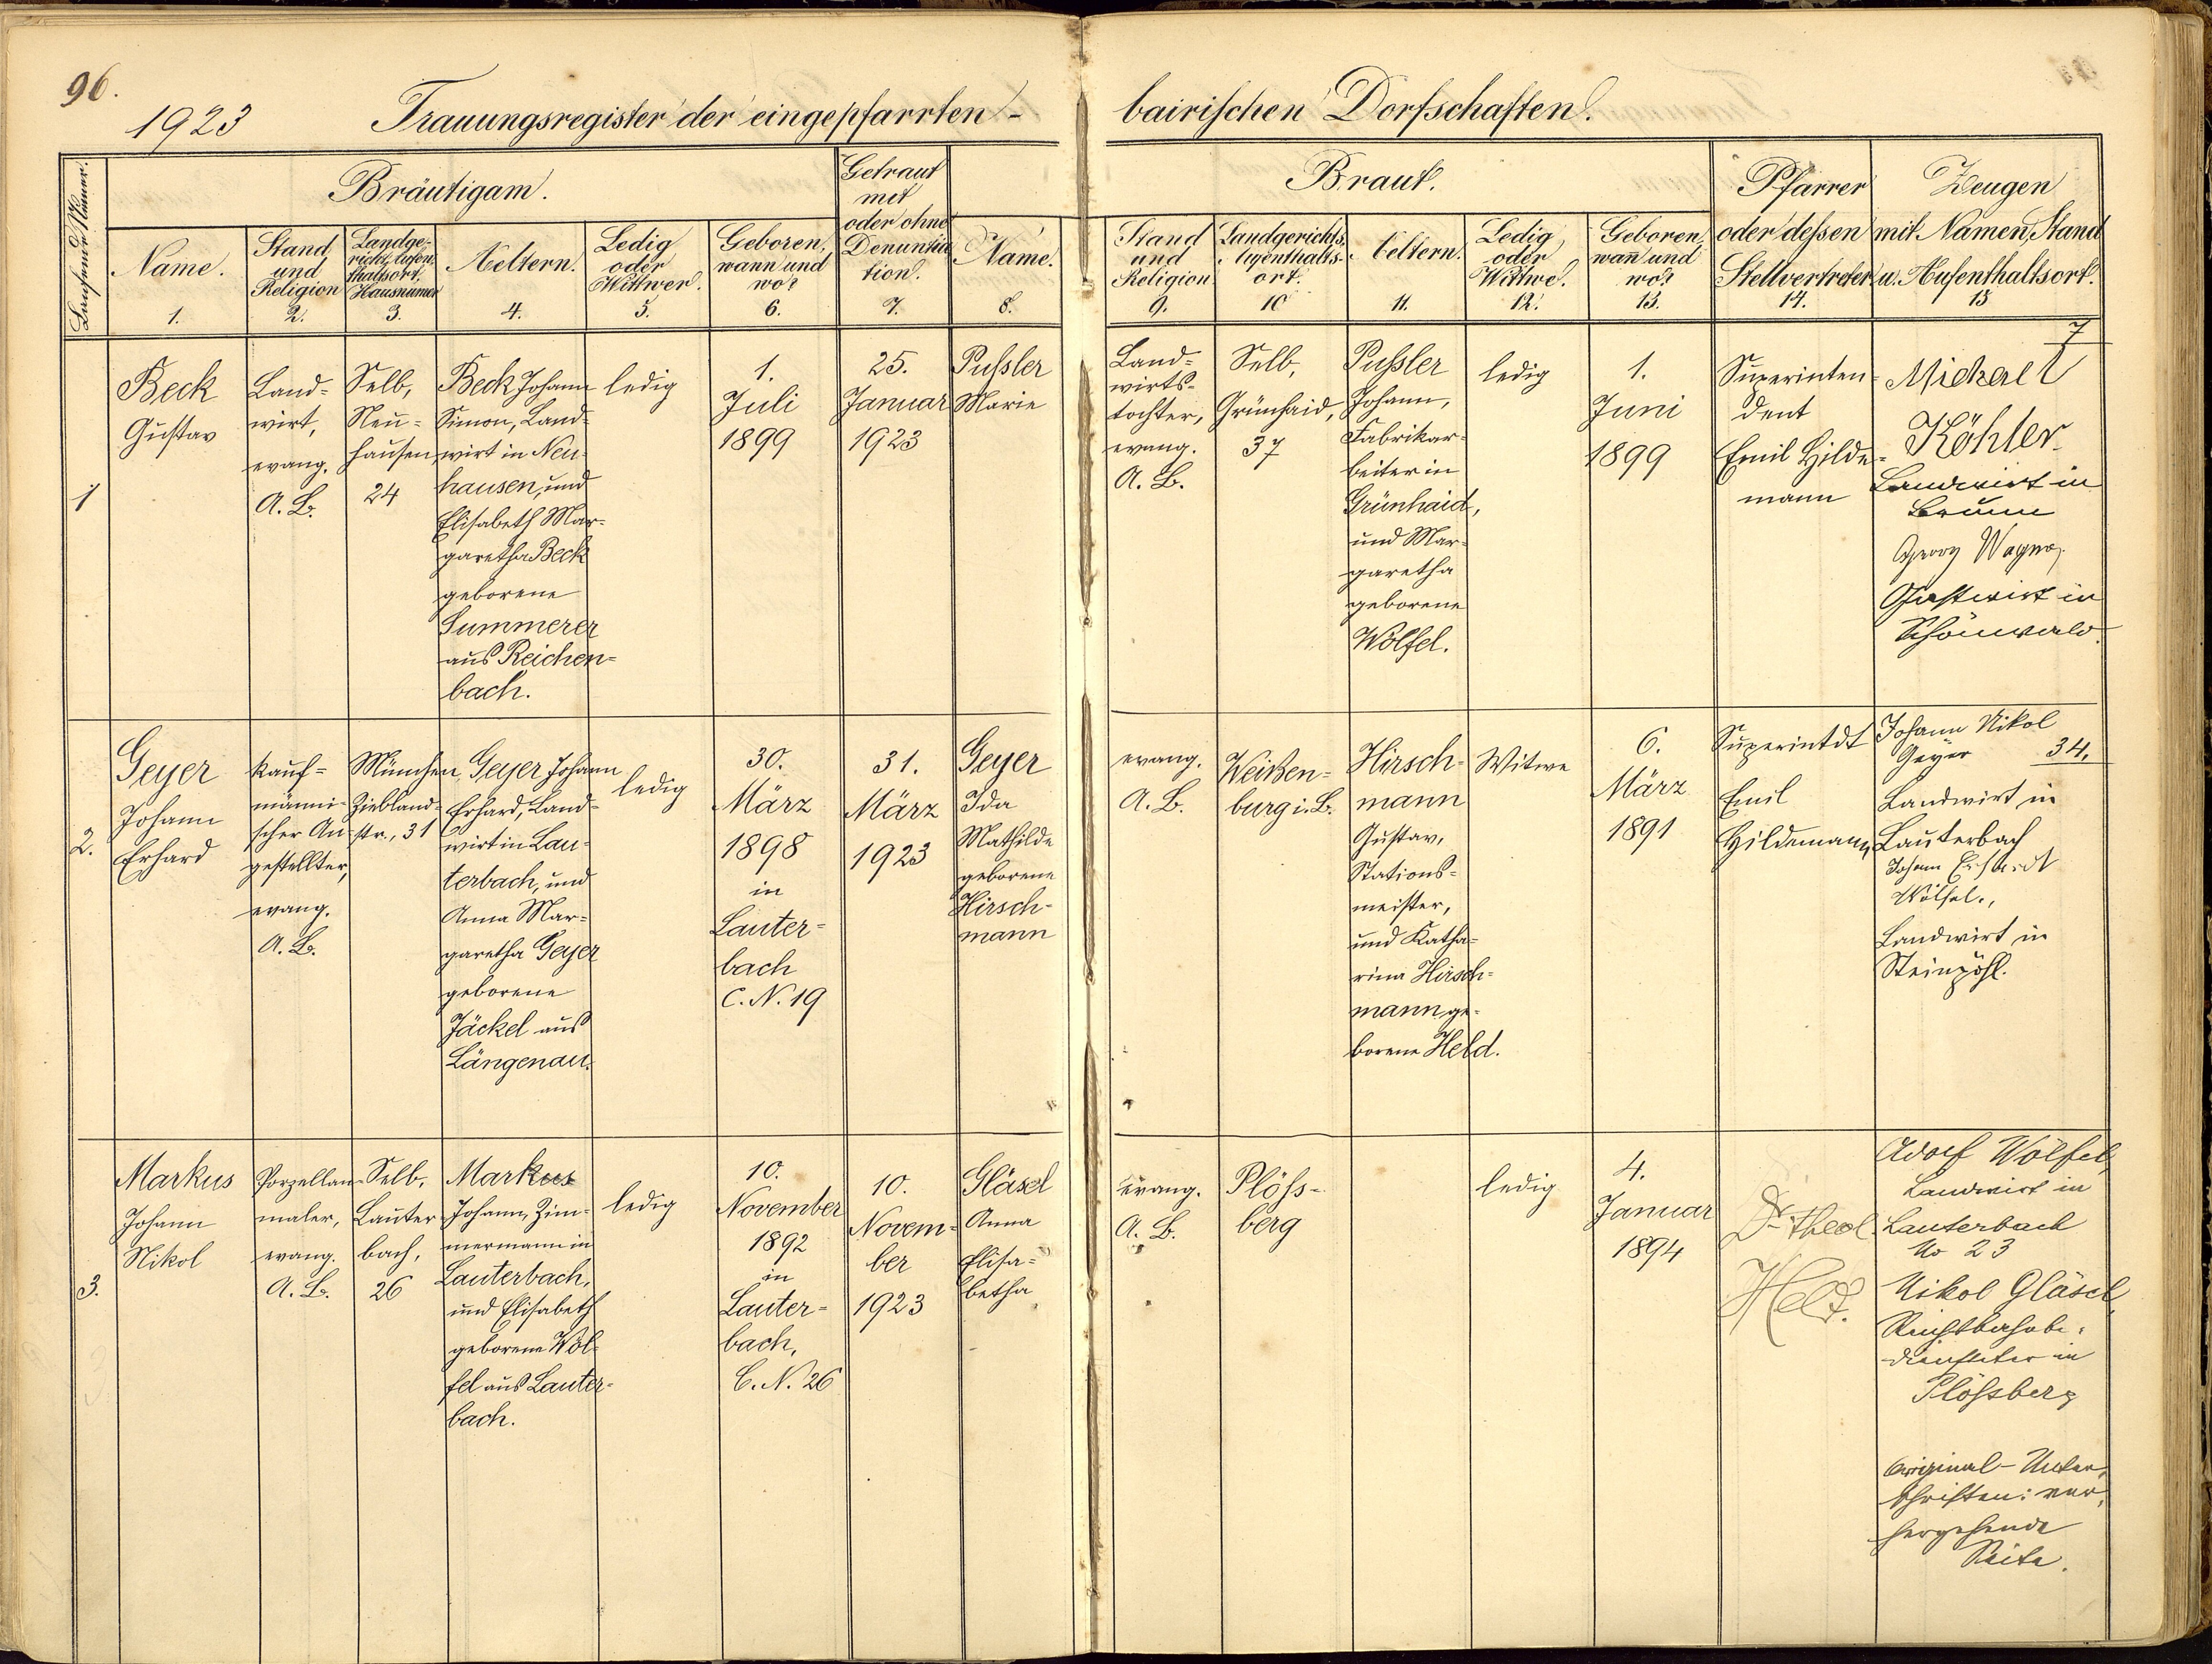 96.
1923
Trauungsregister der eingepfarrten-
bairischen Dorfschaften.
Laufende Numer.
Bräutigam.
Name.
1.
Stand
und
Religion
2.
Landge-
richt, Aufent-
haltsort,
Hausnumer
3.
Aeltern.
4.
Ledig
oder
Wittwer.
5.
Geboren,
wann und
wo?
6.
Getraut
mit
oder ohne
Denuntia
tion.
7.
Braut.
Name.
8.
Stand
und
Religion
9.
Landgerichts,
Aufenthalts-
ort.
10
Aeltern.
11.
Ledig
oder
Wittwe.
12.
Geboren,
wann und
wo?
13.
Pfarrer
oder dessen
Stellvertreter
14.
Zeugen
mit Namen, Stand
u. Aufenthaltsort.
15
1
Beck
Gustav
Land=
wirt,
evang.
A. B.
Selb,
Neu=
hausen,
24
Beck Johann
Simon, Land=
wirt in Neu=
hausen, und
Elisabeth Mar=
garetha Beck
geborene
Summerer
aus Reichen=
bach.
ledig
1.
Juli
1899
25.
Januar
1923
Pußler
Marie
Land=
wirts=
tochter,
evang.
A. B.
Selb,
Grünhaid,
37
Pußler
Johann,
Fabrikar=
beiter in
Grünhaid,
und Mar=
garetha
geborene
Wölfel.
ledig
1.
Juni
1899
Superinten=
dent
Emil Hilde=
mann
7
Michael
Köhler
Landwirt in
Brunn
Georg Wagner
Gastwirt in
Schönwald.
2.
Geyer
Johann
Erhard
Kauf=
männi=
scher An=
gestellter,
evang.
A. B.
München,
Ziebland=
str., 31
Geyer Johann
Erhard, Land=
wirt in Lau=
terbach, und
Anna Mar=
garetha Geyer
geborene
Jäckel aus
Längenau.
ledig
30.
März
1898
in
Lauter=
bach
C. N. 19
31.
März
1923
Geyer
Ida
Mathilde
geborene
Hirsch=
mann
evang.
A. B.
Weißen=
burg i. B.
Hirsch=
mann
Gustav,
Stations=
meister,
und Katha=
rina Hirsch=
mann ge=
borene Held.
Witwe
6.
März
1891
Superintdt
Emil
Hildemann
Johann Nikol
Geyer 34.
Landwirt in
Lauterbach
Johann Erhardt
Wölfel.,
Landwirt in
Steinpöhl.
3.
Markus
Johann
Nikol
Porzellan=
maler,
evang.
A. B.
Selb,
Lauter=
bach,
26
Markus
Johann, Zim=
mermann in
Lauterbach,
und Elisabeth
geborene Wöl=
fel aus Lauter=
bach.
ledig
10.
November
1892
in
Lauter=
bach,
C. N. 26
10.
Novem=
ber
1923
Gläsel
Anna
Elisa=
betha
evang.
A. B.
Plöss=
berg
ledig
4.
Januar
1894
Dr theol.
Held.
Adolf Wölfel,
Landwirt in
Lauterbach
No 23
Nikol Gläsel,
diensteter in
Plößberg
Original-Unter=
schriften: vor=
hergehende
Seite.